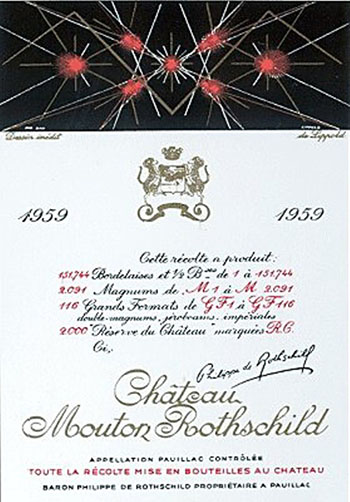 Dessin inédit
de Lippold
1959
1959
Cette récolte a produit:
151744 Bordelaises et ½ Bses de 1 à 151744
2091 Magnums de M 1 à M 2091
116 Grands Formats de GF1 à GF 116
double-magnums, jéroboams, impériales
2000 "Réserve du Château" marqués R.C.
Ci,
Philippe de Rothschild
Château
Mouton Rothschild
APPELLATION PAUILLAC CONTRÔLÉE
TOUTE LA RÉCOLTE MISE EN BOUTEILLES AU CHATEAU
BARON PHILIPPE DE ROTHSCHILD PROPRIÉTAIRE A PAUILLAC